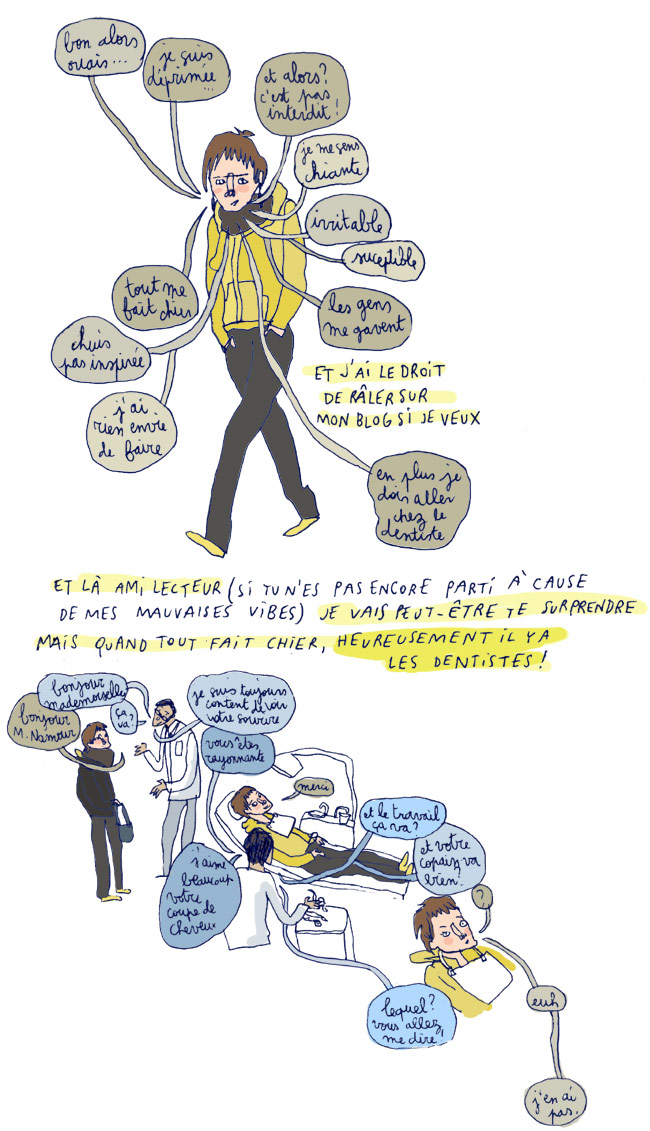 bon alors
ouais...
je suis
déprimée
...
et alors?
c'est pas
interdit!
je me sens
chiante
irritable
suceptible
les gens
me gavent
tout me
fait chier
chuis
pas inspirée
j'ai
rien envie
de faire
ET J'AI LE DROIT
DE RÂLER SUR
MON BLOG SI JE VEUX
en plus je
dois aller
chez le
dentiste
ET LÀ AMI LECTEUR (SI TU N'ES PAS ENCORE PARTI À CAUSE
DE MES MAUVAISES VIBES) JE VAIS PEUT-ÊTRE TE SURPRENDRE
MAIS QUAND TOUT FAIT CHIER, HEUREUSEMENT IL Y A
LES DENTISTES!
bonjour
mademoiselle
bonjour
M. Namour
ça
va?
je suis toujours
content de voir
votre sourire
vous êtes
rayonnante
merci
j'aime
beaucoup
votre
coupe de
cheveux
et le travail
ça va?
et votre
copain, va
bien?
?
lequel?
vous allez
me dire!
euh
j'en ai
pas.